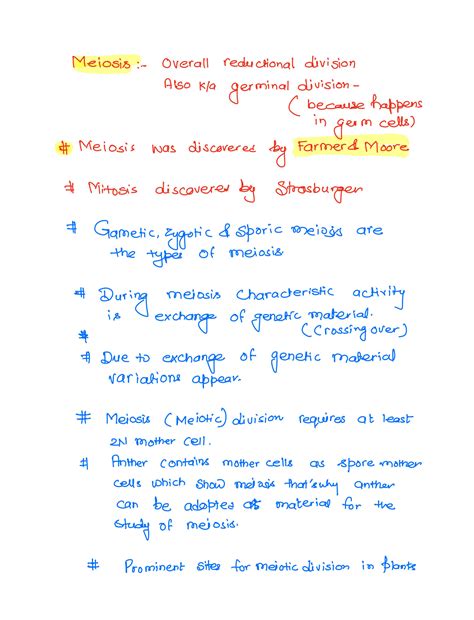 Meiosis :- Overall reductional division
Also k/a germinal division -
(because happens
in germ cells)
# Meiosis was discovered by Farmer & Moore
# Mitosis discovered by Strasburger
# Gametic, zygotic & Sporic meiosis are
the types of meiosis
# During meiosis characteristic activity
is exchange of genetic material.
(Crossing over)
#
# Due to exchange of genetic material
variations appear.
# Meiosis (Meiotic) division requires at least
2N mother cell.
# Anther contains mother cells as spore mother
cells which show meiosis that's why anther
can be adopted as material for the
study of meiosis.
# Prominent sites for meiotic division in plants